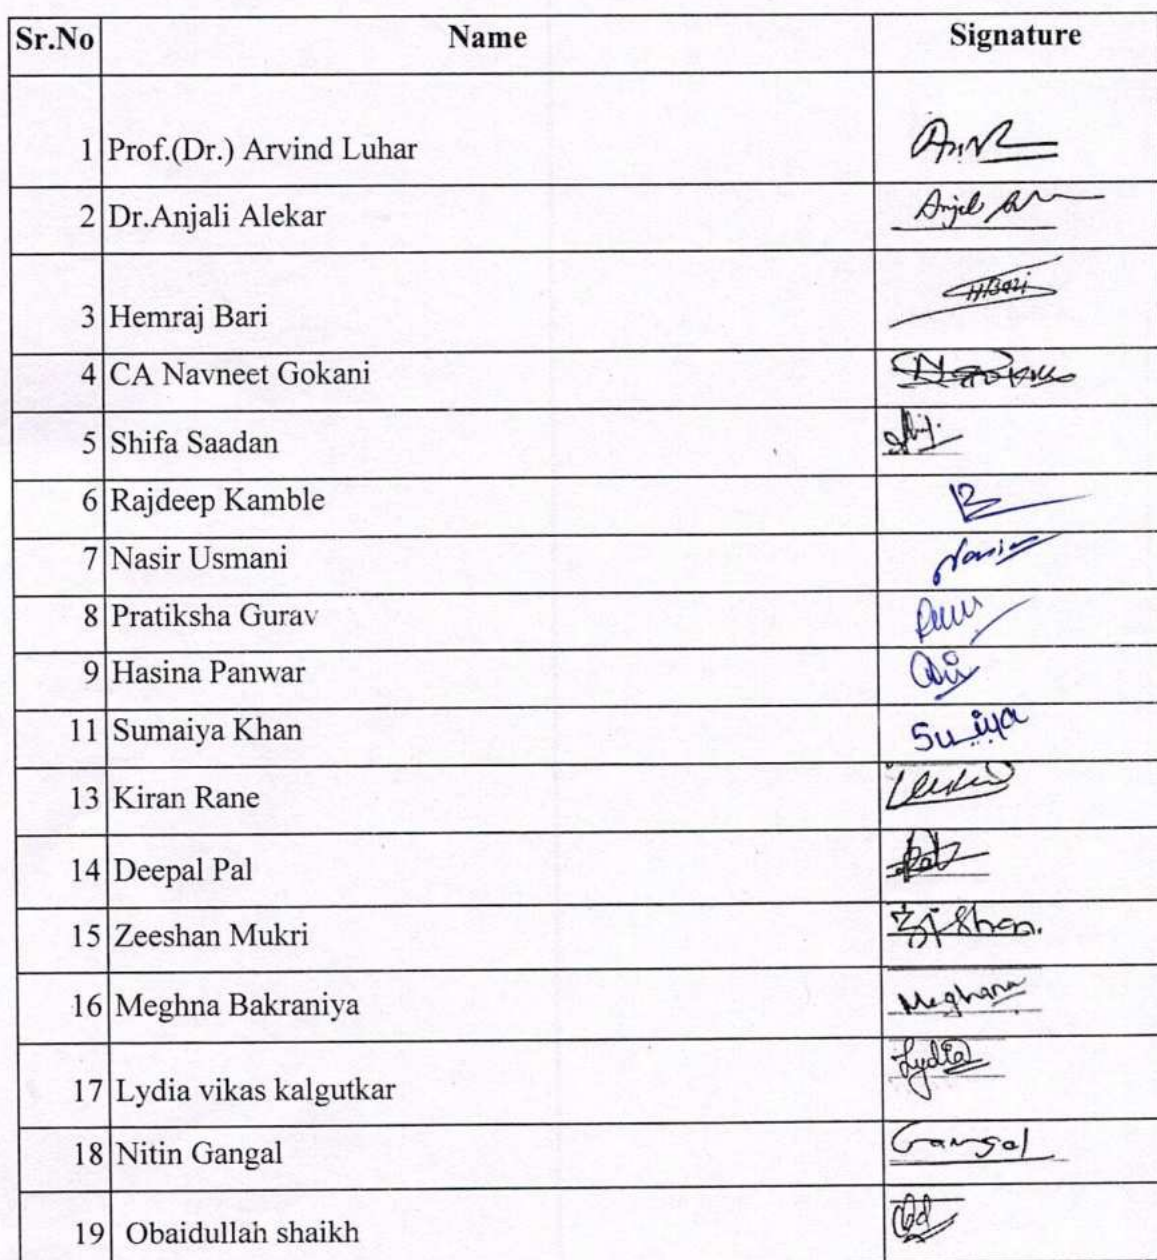 Sr.No Name Signature
1 Prof.(Dr.) Arvind Luhar
2 Dr.Anjali Alekar
3 Hemraj Bari HBari
4 CA Navneet Gokani
5 Shifa Saadan
6 Rajdeep Kamble
7 Nasir Usmani Nasir
8 Pratiksha Gurav
9 Hasina Panwar
11 Sumaiya Khan
13 Kiran Rane
14 Deepal Pal Pal
15 Zeeshan Mukri
16 Meghna Bakraniya Meghana
17 Lydia vikas kalgutkar Lydia
18 Nitin Gangal Gangal
19 Obaidullah shaikh